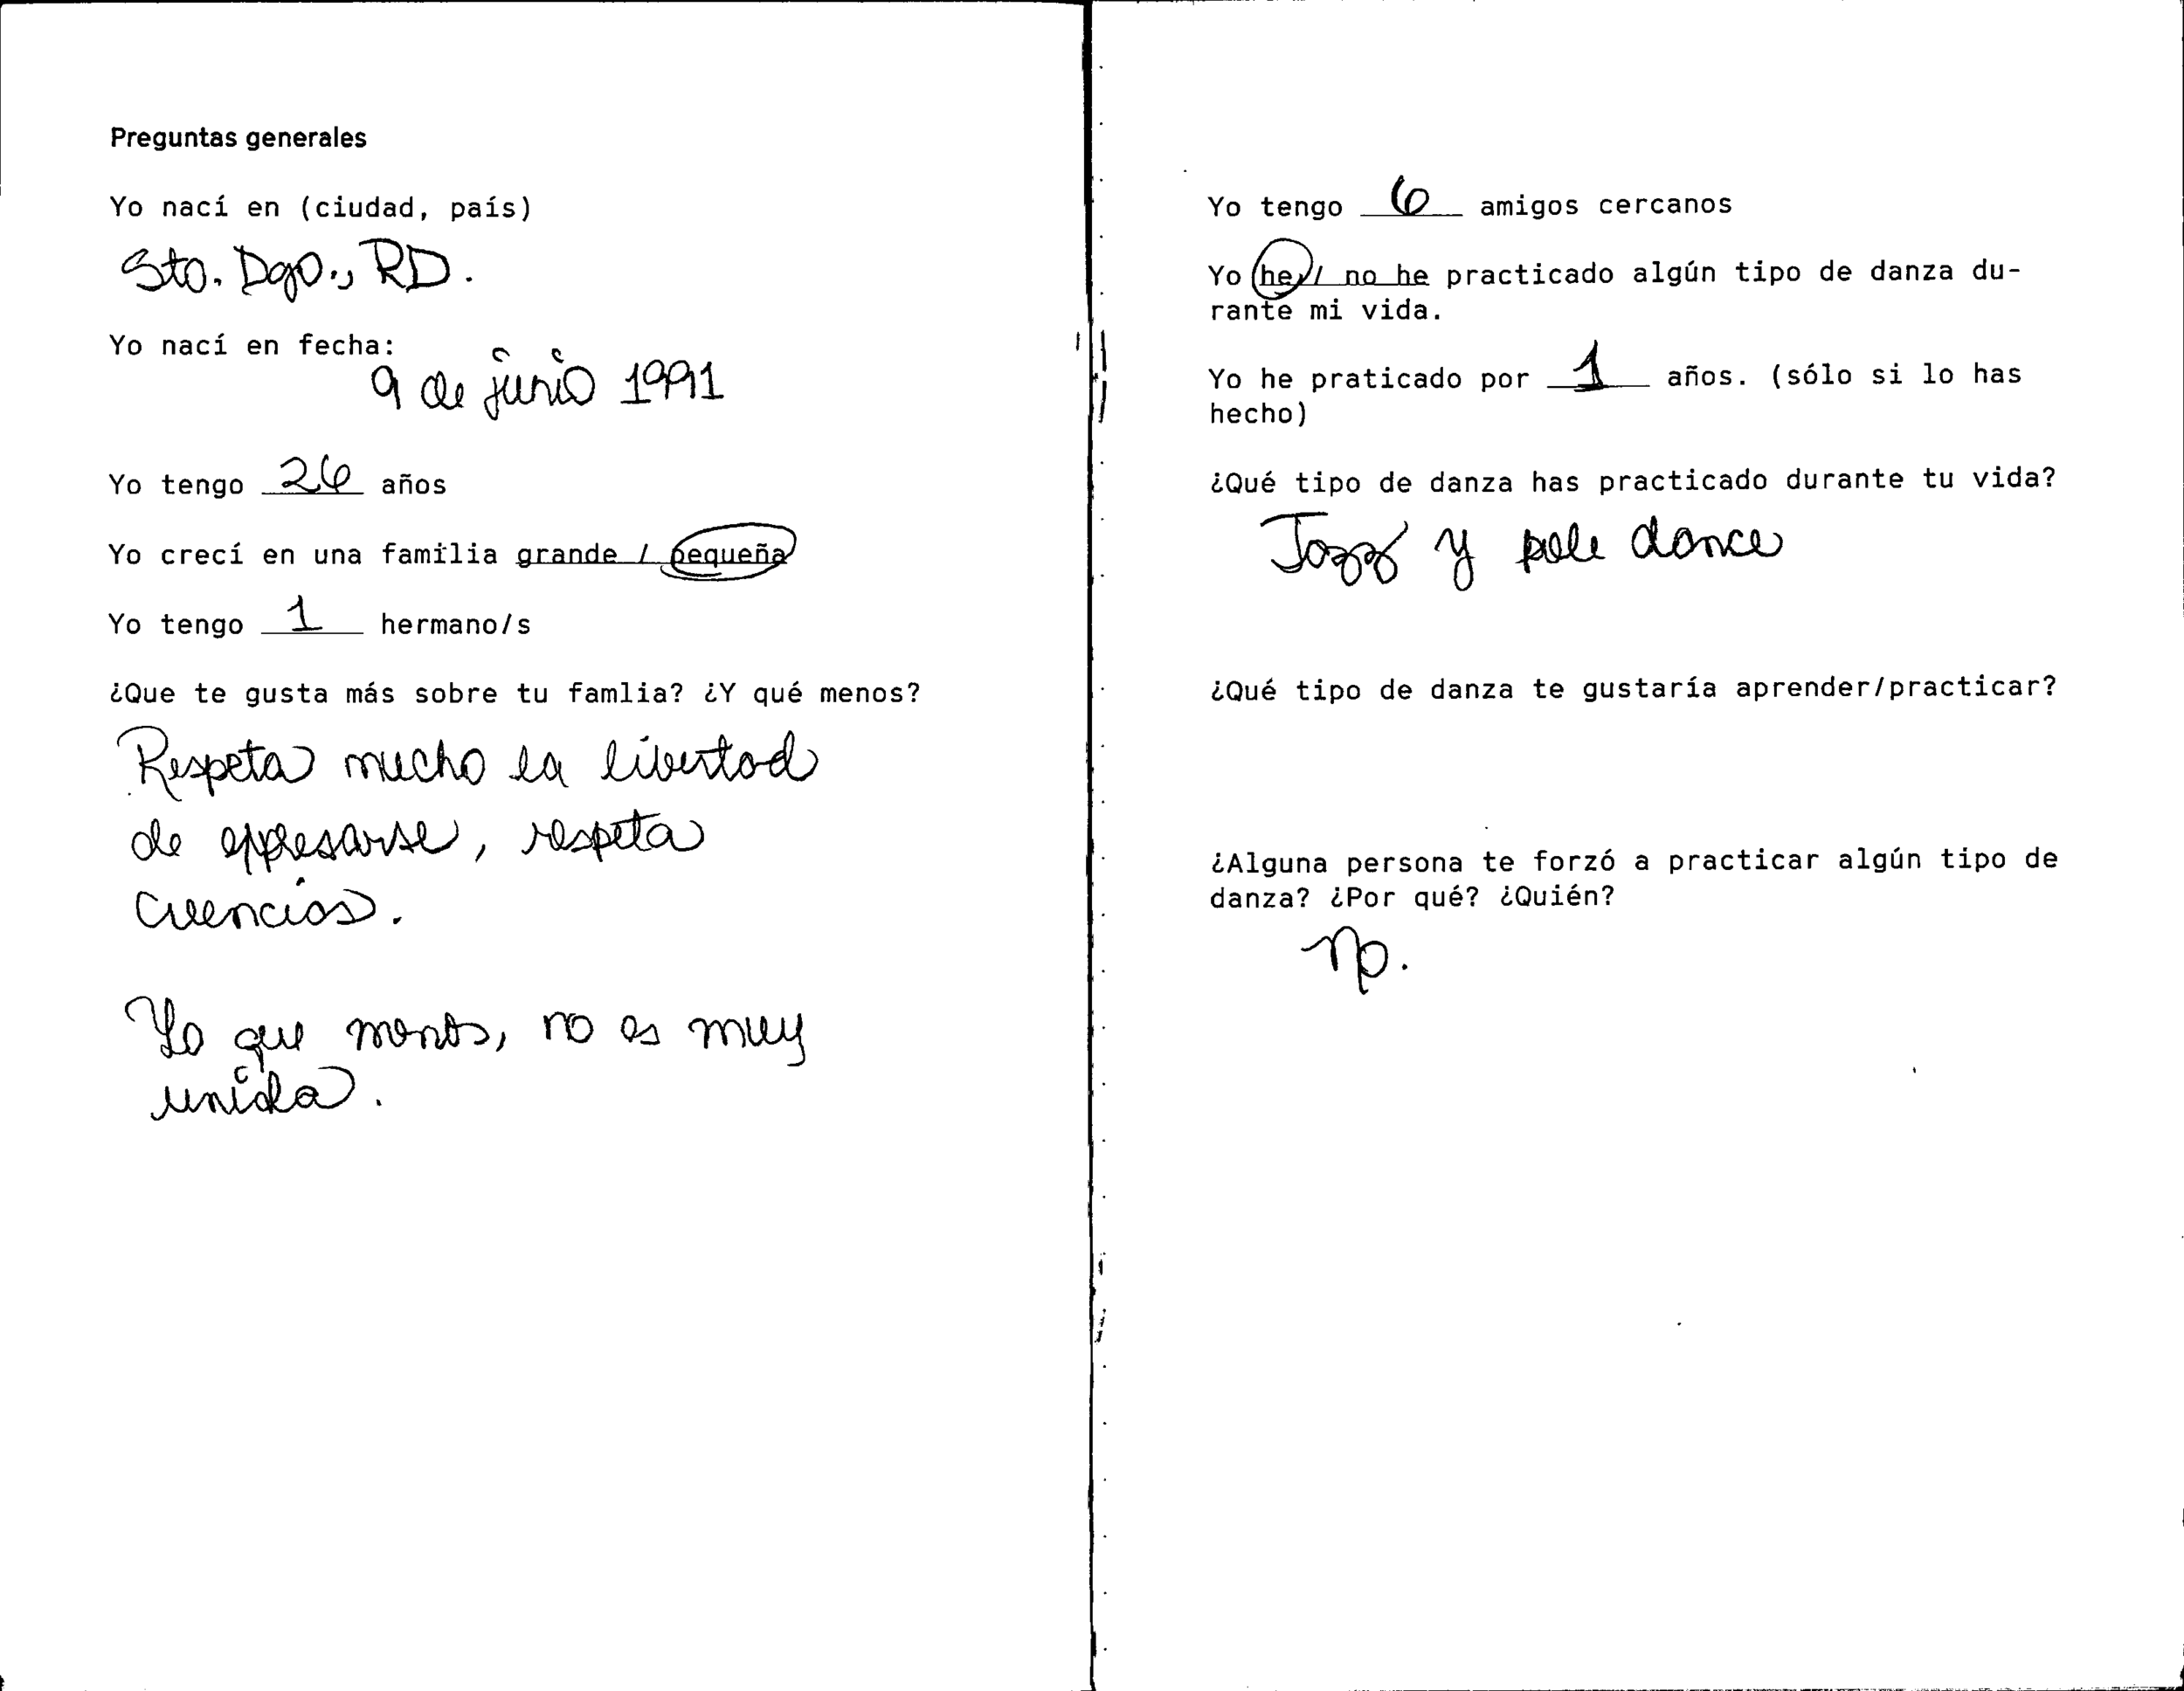 Preguntas generales
Yo nací en (ciudad, país)
Sto. Dgo., RD.
Yo nací en fecha:
9 de junio 1991
Yo tengo 26 años
Yo crecí en una familia grande / pequeña
Yo tengo 1 hermano/s
¿Que te gusta más sobre tu famlia? ¿Y qué menos?
Respeta mucho la libertad
de expresarse, respeta
creencias.
Lo que menos, no es muy
unida.
Yo tengo 6 amigos cercanos
Yo he / no he practicado algún tipo de danza du-
rante mi vida.
Yo he praticado por 1 años. (sólo si lo has
hecho)
¿Qué tipo de danza has practicado durante tu vida?
Jazz y pole dance
¿Qué tipo de danza te gustaría aprender/practicar?
¿Alguna persona te forzó a practicar algún tipo de
danza? ¿Por qué? ¿Quién?
no.